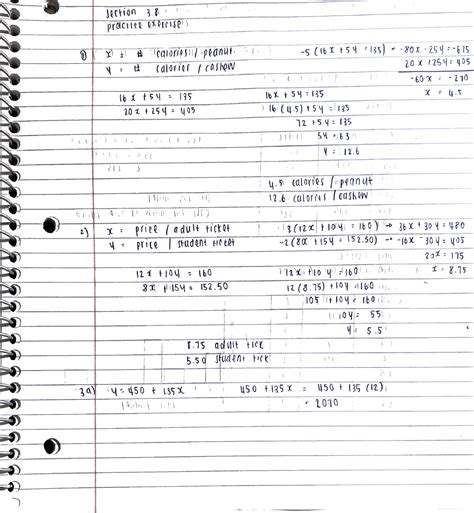 section 3.8
practice exercises
1) x = # calories / peanut
y = # calories / cashew
-5(16x + 5y = 135) → -80x - 25y = -675
20x + 25y = 405
-60x = -270
x = 4.5
16x + 5y = 135
20x + 25y = 405
16x + 5y = 135
16(4.5) + 5y = 135
72 + 5y = 135
5y = 63
y = 12.6
4.5 calories / peanut
12.6 calories / cashew
2) x = price / adult ticket
y = price / student ticket
3(12x + 10y = 160) → 36x + 30y = 480
-2(8x + 15y = 152.50) → -16x - 30y = 405
20x = 175
x = 8.75
12x + 10y = 160
8x + 15y = 152.50
12x + 10y = 160
12(8.75) + 10y = 160
105 + 10y = 160
10y = 55
y = 5.5
8.75 adult tick
5.50 student tick
3a) y = 450 + 135x
450 + 135x = 450 + 135(12)
= 2070